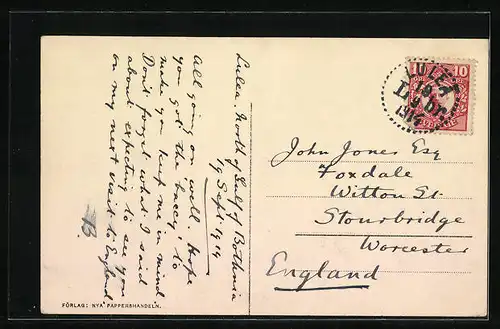 Lulea. North of Gulf of Bothnia
19 Sept. 1914
All going on well. Hope
you got the baccy, to
make you keep me in mind
Dont forget what I said
about expecting to see you
on my next visit to England
FÖRLAG: NYA PAPPERSHANDELN.
10 10
LULEÅ
19 9
1914
John Jones Esq
Foxdale
Witton St
Stourbridge
Worcester
England